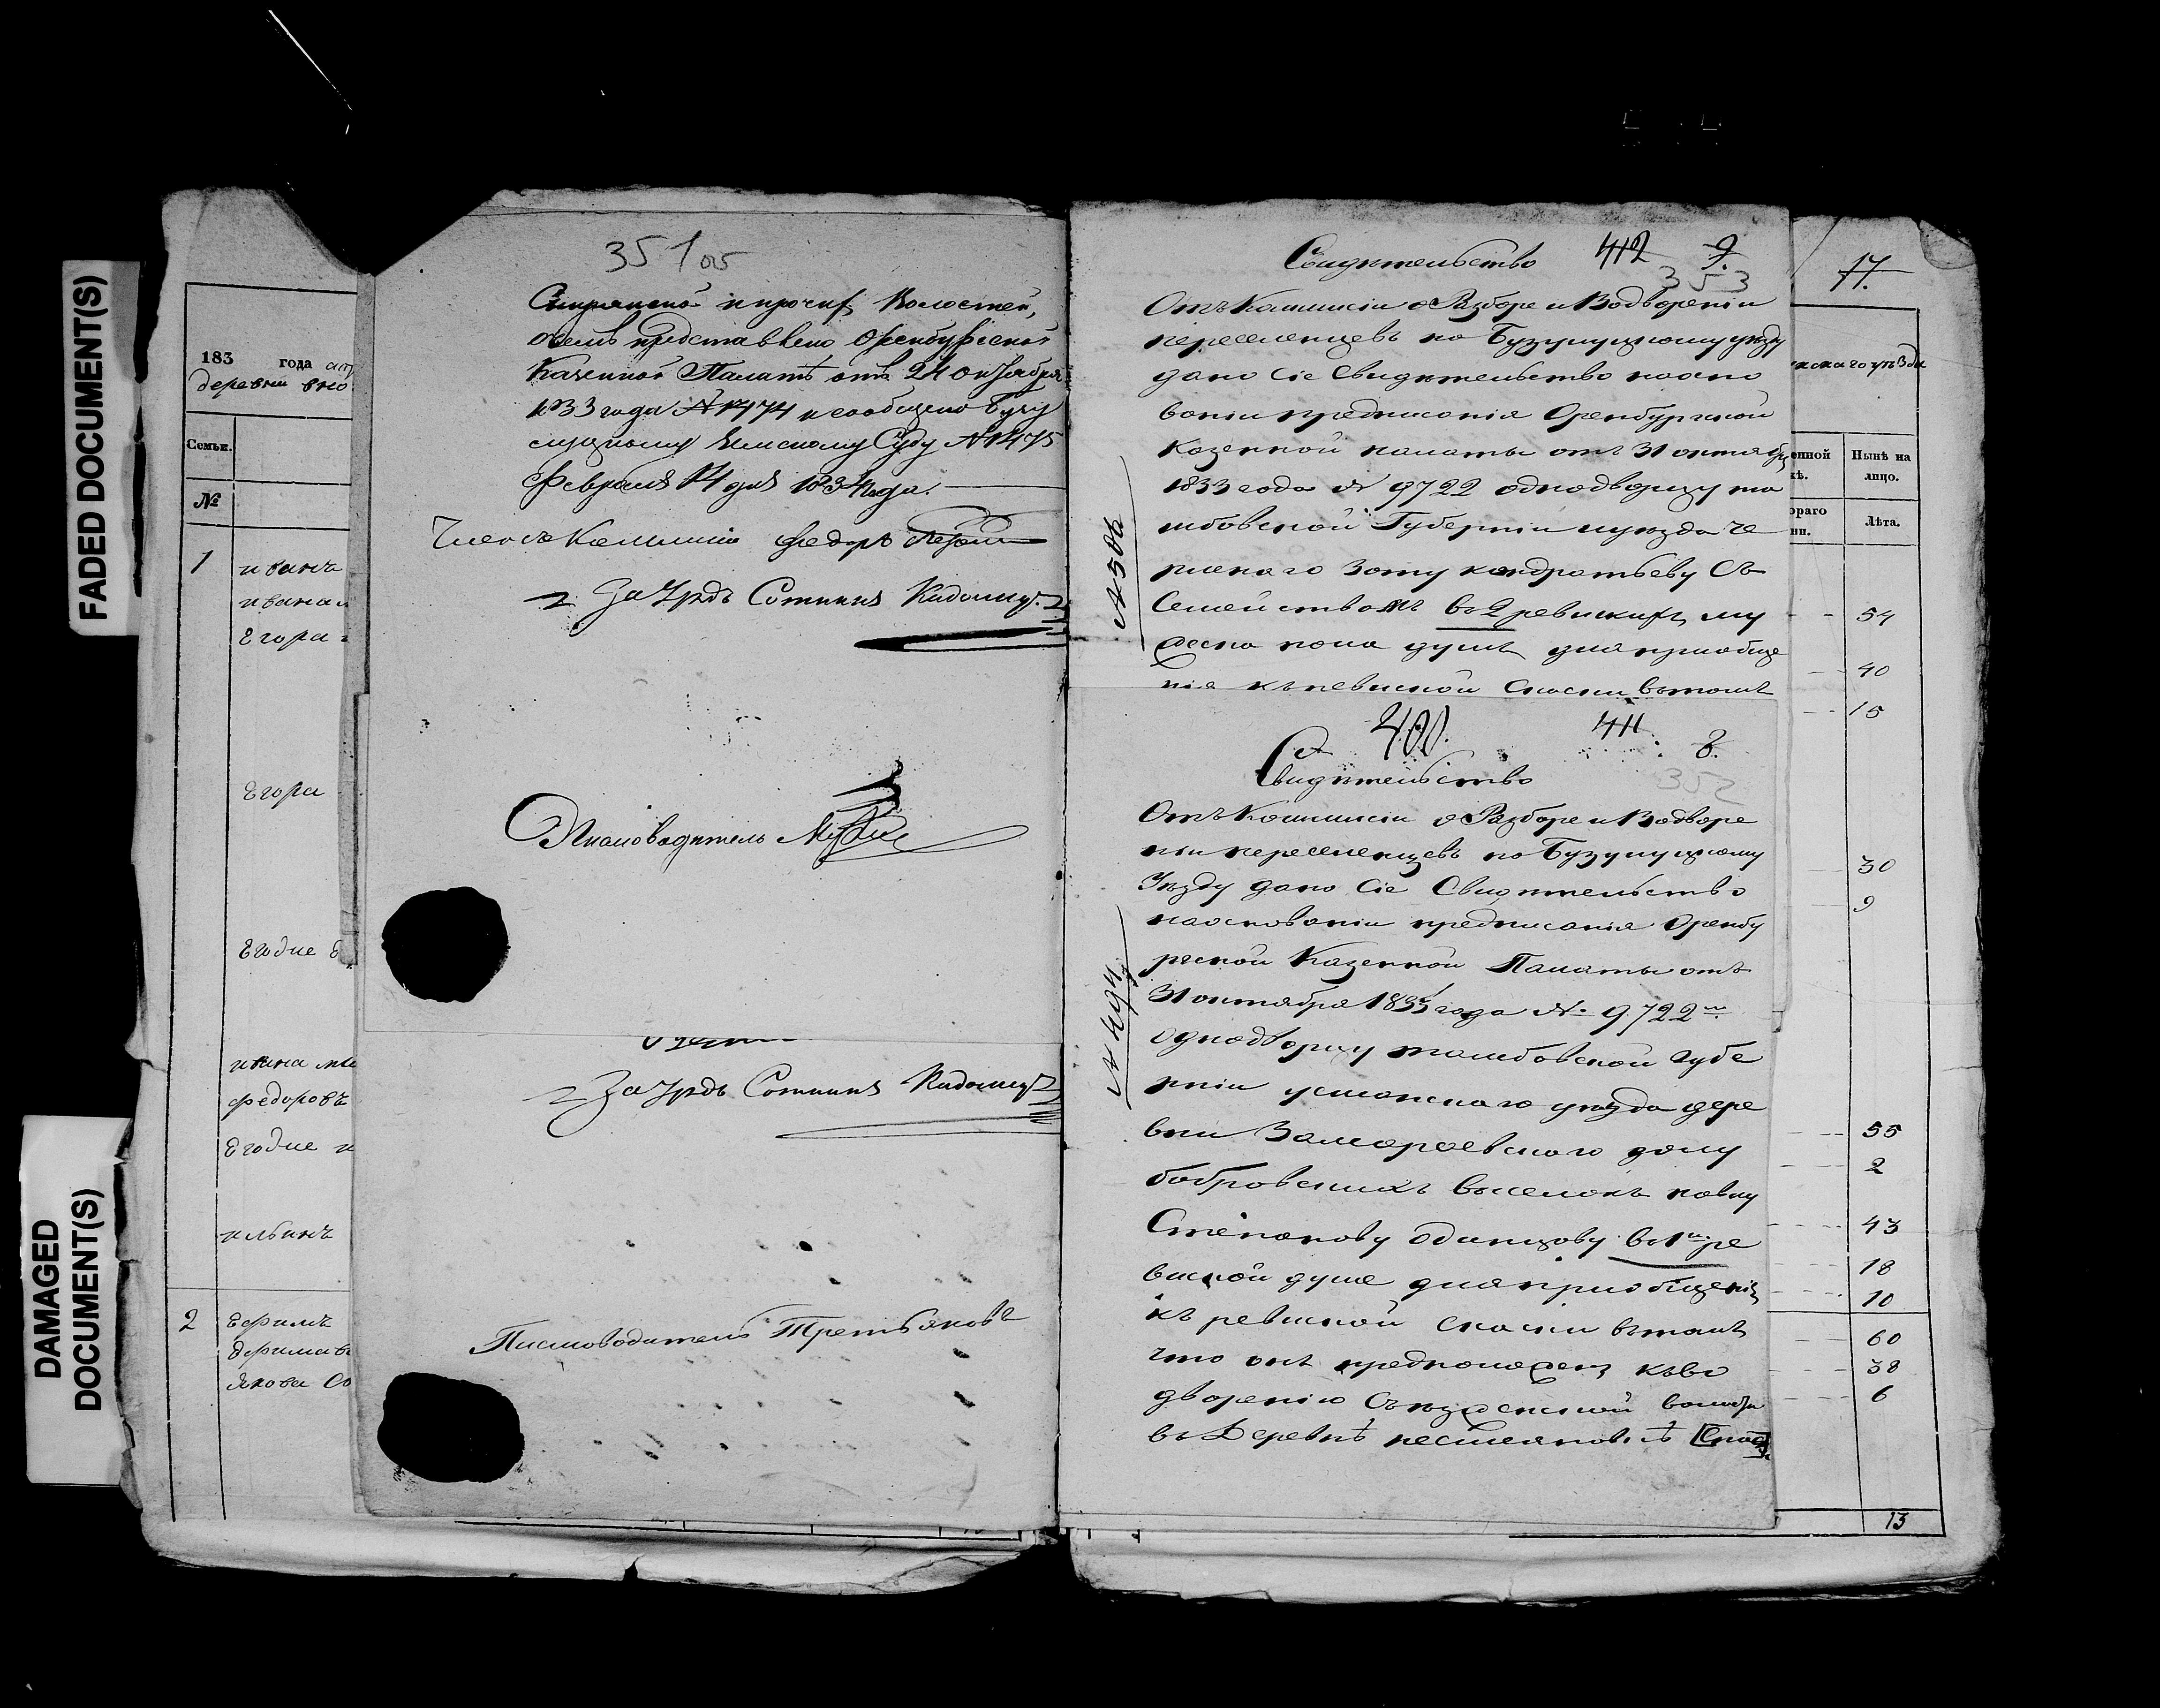 FADED DOCUMENT(S)
DAMAGED DOCUMENT(S)
183 года
деревни вно
Семьи.
№
1
иванъ
ивана
Егора
Егора
Егодче
ивана
федоровъ
Егодче
ильинъ
2 Ефимъ
Ефима
Якова
351 об
и прочих Волостей,
о чемъ представлено Оренбургской
Казенной Палатѣ отъ 24 октября
1833 года № 1474 и сообщено Бузу
лукскому Земскому Суду № 1475
Февраля 14 дня 1834 года.
Членъ Комиссіи Федоръ
За Урядъ Сотникъ
Писмоводитель
За Урядъ Сотникъ
Писмоводитель Третьяковъ
Свидѣтельство 412 9.
353
Отъ Комиссіи о Разборе и Водвореніи
переселенцевъ по Бузулуцкому уѣзду
дано сіе Свидѣтельство на осно
ваніи предписанія Оренбургской
Казенной палаты отъ 31 октября
1833 года № 9722 однодворцу та
мбовской Губерніи и уѣзда
Зоту кондратьеву Съ
Семействомъ въ 2 ревискихъ му
жеска пола душъ для приобще
нія къ ревиской Скаски въ томъ
№ 508
400. 411. 8.
Свидѣтельство
352
Отъ Комиссіи о Разборе и Водворе
ніи переселенцевъ по Бузулуцкому
Уѣзду дано Сіе Свидѣтельство
на основаніи предписанія Оренбу
ргской Казенной Палаты отъ
31 октября 1833 года № 9722
однодворцу тамбовской губе
рніи усманского уѣзда дере
вни
бобровскихъ выселокъ
Степанову одинцову въ 1 ре
виской душе для приобщенія
къ ревиской скаски въ томъ
что онъ предположенъ къ во
дворенію Съезженской волости
въ Деревнѣ
№ 494
17.
уѣзда
Нынѣ на
лицо.
Лѣта.
54
40
15
30
9
55
2
43
18
10
60
38
6
13